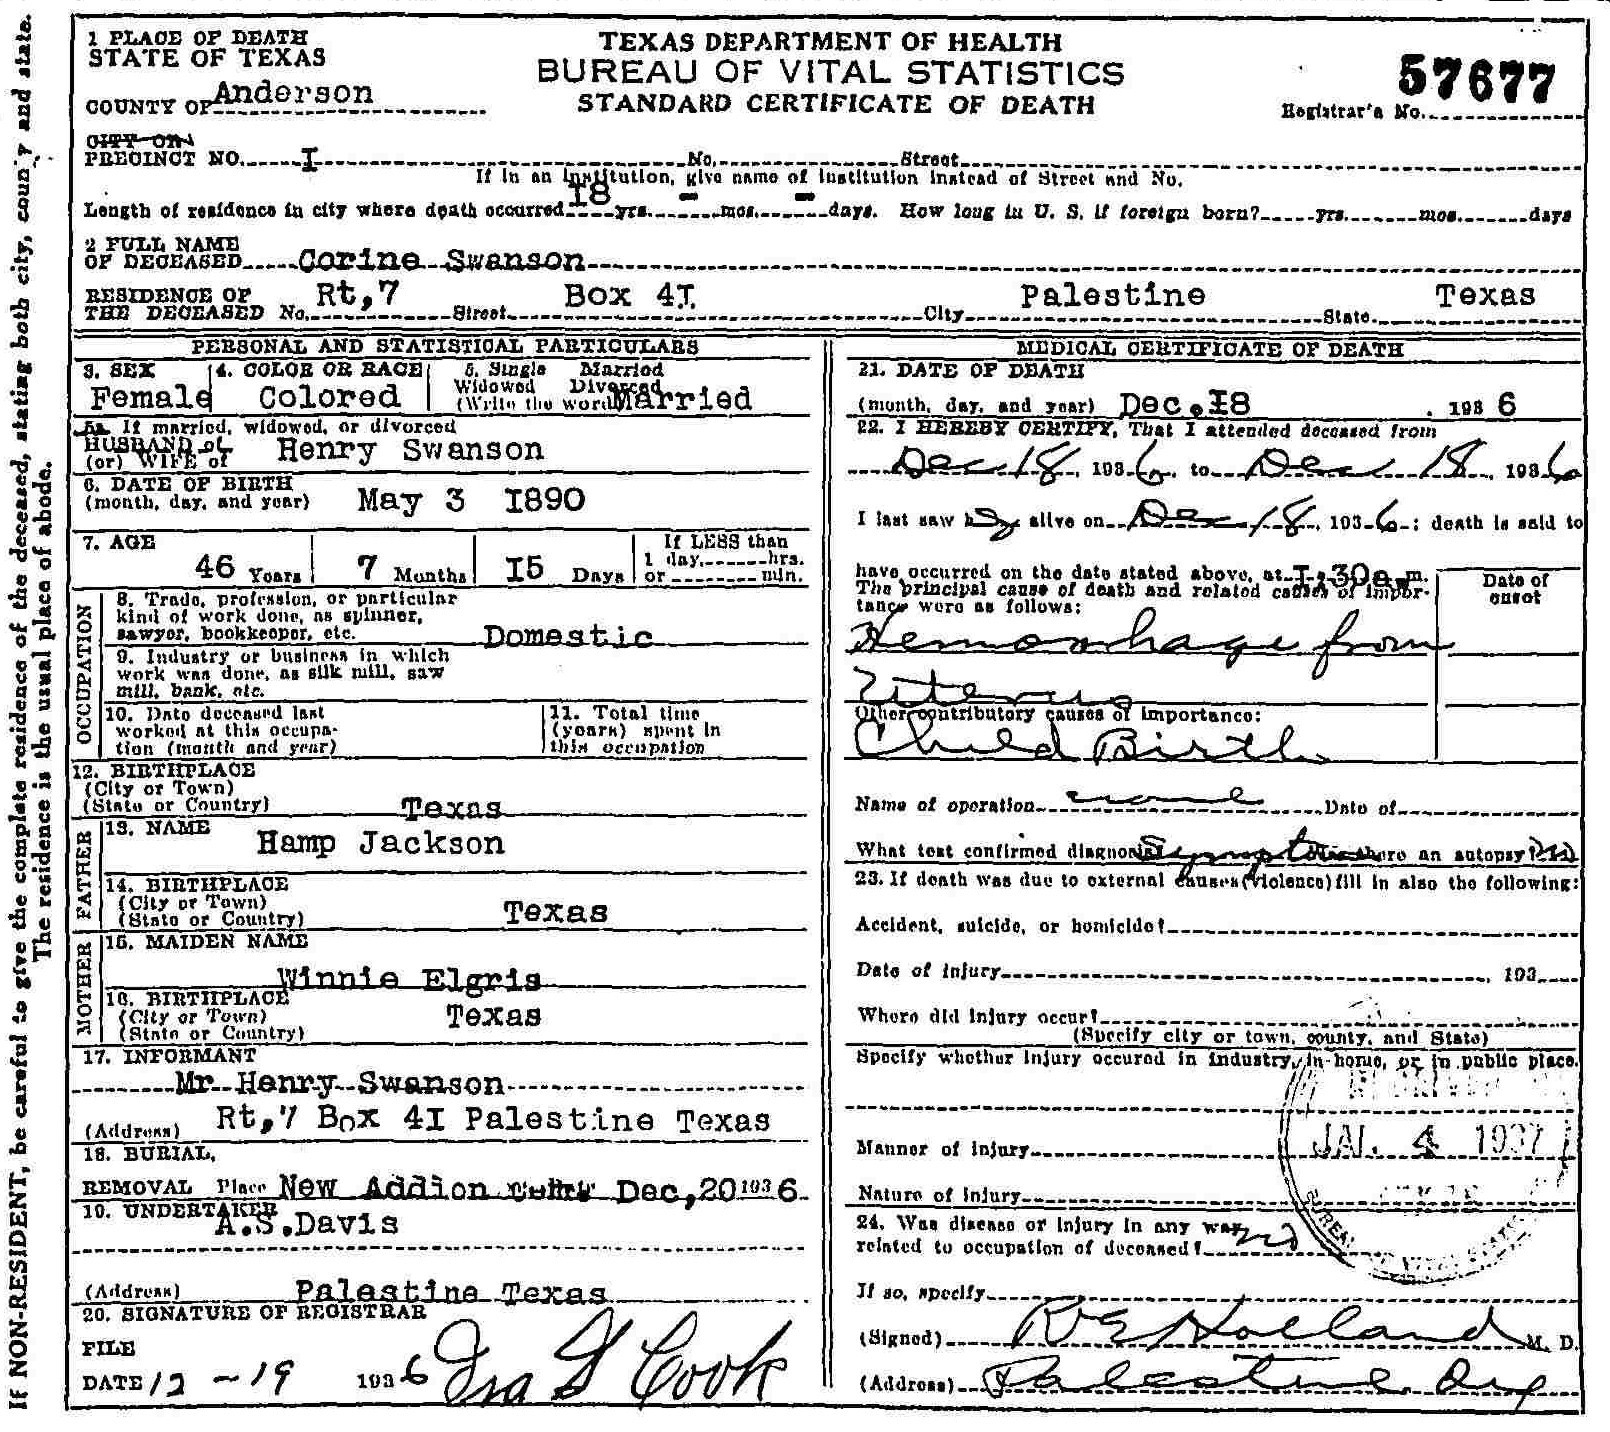 If NON-RESIDENT, be careful to give the complete residence of the deceased, stating both city, county and state.
The residence is the usual place of abode.
1 PLACE OF DEATH
STATE OF TEXAS
COUNTY OF Anderson
TEXAS DEPARTMENT OF HEALTH
BUREAU OF VITAL STATISTICS
STANDARD CERTIFICATE OF DEATH
57677
Registrar's No.
CITY OR
PRECINCT NO. I No. Street
If in an institution, give name of institution instead of Street and No.
Length of residence in city where death occurred I8 yrs. - mos. - days. How long in U. S. if foreign born? yrs. mos. days
2 FULL NAME
OF DECEASED Corine Swanson
RESIDENCE OF
THE DECEASED No. Rt,7 Street Box 4I City Palestine State Texas
PERSONAL AND STATISTICAL PARTICULARS
3. SEX
Female
4. COLOR OR RACE
Colored
5. Single Married
Widowed Divorced
(Write the word) Married
5a. If married, widowed, or divorced
HUSBAND of
(or) WIFE of Henry Swanson
6. DATE OF BIRTH
(month, day, and year) May 3 I890
7. AGE
46 Years 7 Months I5 Days
If LESS than
1 day, hrs.
or min.
OCCUPATION
8. Trade, profession, or particular
kind of work done, as spinner,
sawyer, bookkeeper, etc. Domestic
9. Industry or business in which
work was done, as silk mill, saw
mill, bank, etc.
10. Date deceased last
worked at this occupa-
tion (month and year)
11. Total time
(years) spent in
this occupation
12. BIRTHPLACE
(City or Town)
(State or Country) Texas
FATHER
13. NAME Hamp Jackson
14. BIRTHPLACE
(City or Town)
(State or Country) Texas
MOTHER
15. MAIDEN NAME
Winnie Elgris
16. BIRTHPLACE
(City or Town) Texas
(State or Country)
17. INFORMANT
Mr Henry Swanson
(Address) Rt,7 Box 4I Palestine Texas
18. BURIAL,
REMOVAL Place New Addion Dec,20 1936
19. UNDERTAKER
A.S.Davis
(Address) Palestine Texas
20. SIGNATURE OF REGISTRAR
FILE
DATE 12-19 1936 Ira G Cook
MEDICAL CERTIFICATE OF DEATH
21. DATE OF DEATH
(month, day, and year) Dec.I8 , 193 6
22. I HEREBY CERTIFY, That I attended deceased from
Dec 18, 1936, to Dec 18, 1936
I last saw her alive on Dec 18, 1936; death is said to
have occurred on the date stated above, at I;30a m.
The principal cause of death and related causes of impor-
tance were as follows:
Date of
onset
Hemorrhage from
Uterus
Other contributory causes of importance:
Child Birth
Name of operation none Date of
What test confirmed diagnosis? Symptoms Was there an autopsy? no
23. If death was due to external causes (violence) fill in also the following:
Accident, suicide, or homicide?
Date of injury , 193
Where did injury occur?
(Specify city or town, county, and State)
Specify whether injury occured in industry, in home, or in public place.
Manner of injury
Nature of injury
JAN. 4 1937
BUREAU
24. Was disease or injury in any way
related to occupation of deceased? no
If so, specify
(Signed) R E Holland M. D.
(Address) Palestine